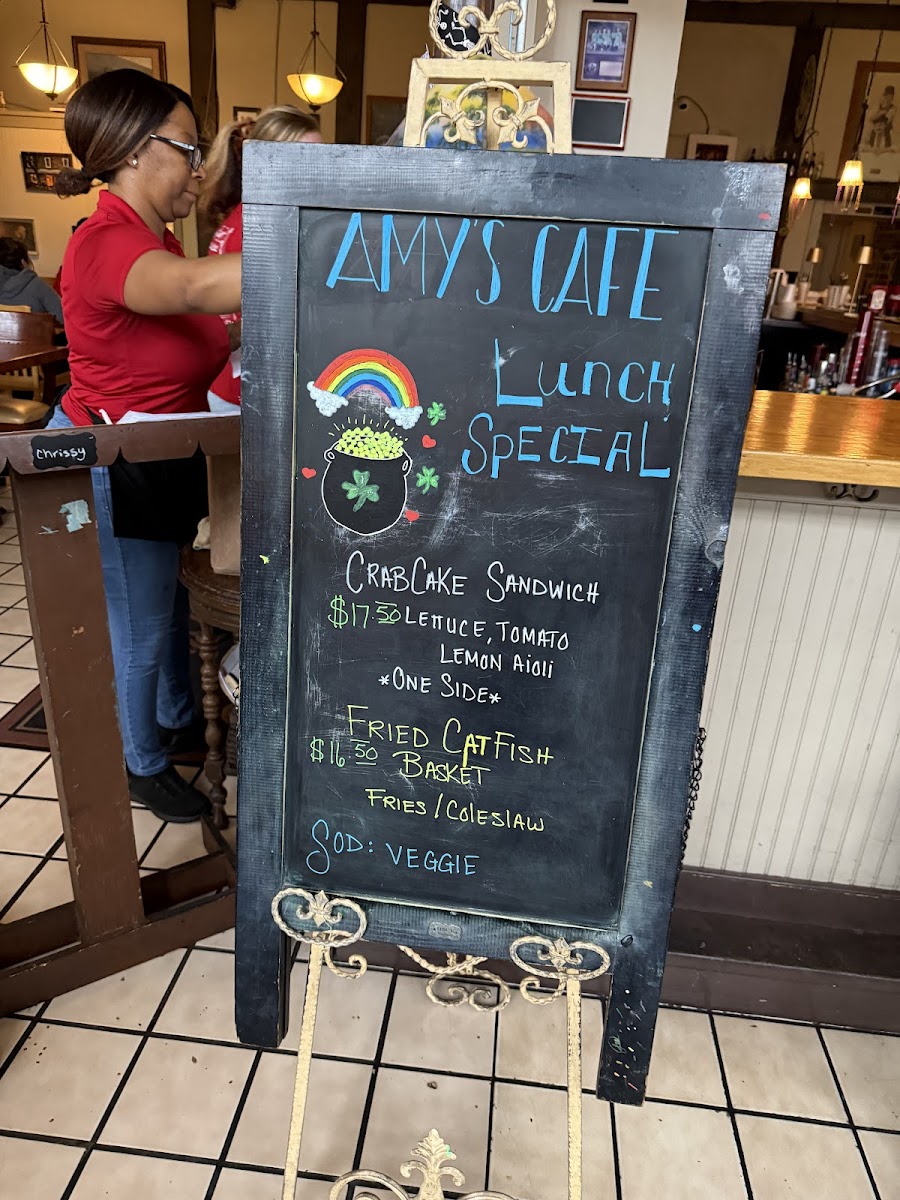 AMY'S CAFE
Lunch
SPECIAL
chrissy
CRABCAKE SANDWICH
$17.50 LETTUCE, TOMATO
LEMON Aioli
*ONE SIDE*
FRIED CATFISH
$16.50 BASKET
FRIES/COLESLAW
SOD: VEGGIE